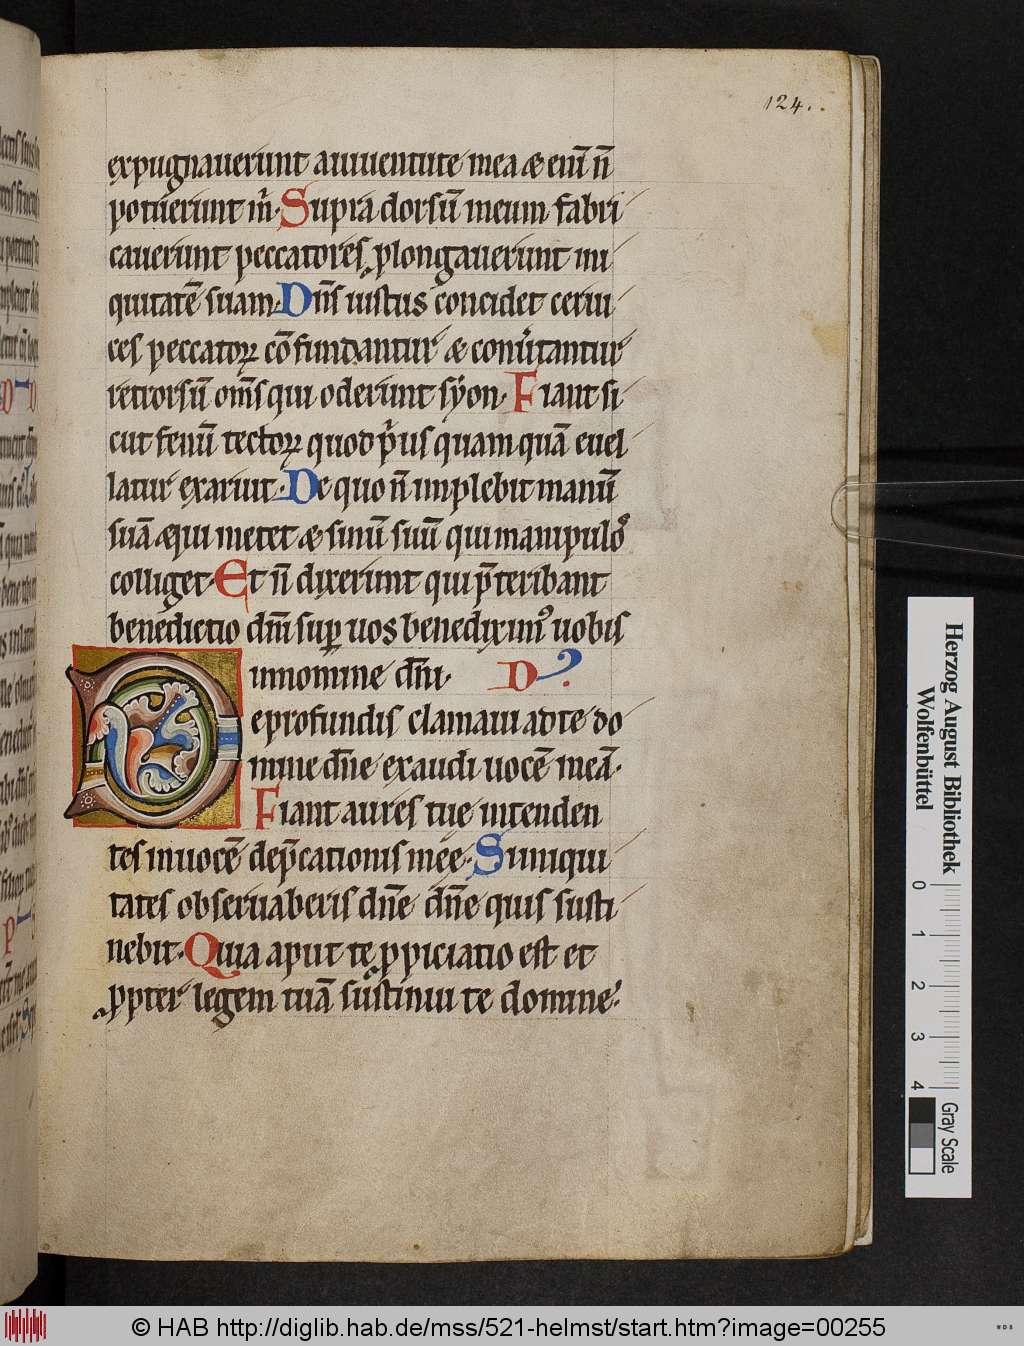 124.
expugnauerunt a iuuentute mea & enī n̄
potuerunt m̄. Supra dorsū meum fabri
cauerunt peccatores ꝓlongauerunt ini
quitatē suam. Dn̄s iustus concidet ceruı
ces peccatoꝝ cōfundantur & conu̓tantur
retrorsū om̄s qui oderunt sẏon. Fiant si
cut fenū tectoꝝ quod p̓us quam quā euel
latur exaruit. De quo n̄ impleuit manū
suā æqui metet & sinū suū qui manipulꝰ
colliget. Et n̄ dixerunt qui p̄teribant
benedictio dn̄i suꝑ uos benediximꝰ uobis
in nomine dn̄i. D
De profundis clamaui ad te do
mine dn̄e exaudi uocē meā.
Fiant aures tue intenden
tes in uocē dep̄cationis mee. Si iniqui
tates obseruaberis dn̄e dn̄e quis susti
nebit. Quia aput te ꝓpiciatio est et
ꝓpter legem tuā sustinui te domine.
Herzog August Bibliothek
Wolfenbüttel
0 1 2 3 4
Gray Scale
© HAB http://diglib.hab.de/mss/521-helmst/start.htm?image=00255